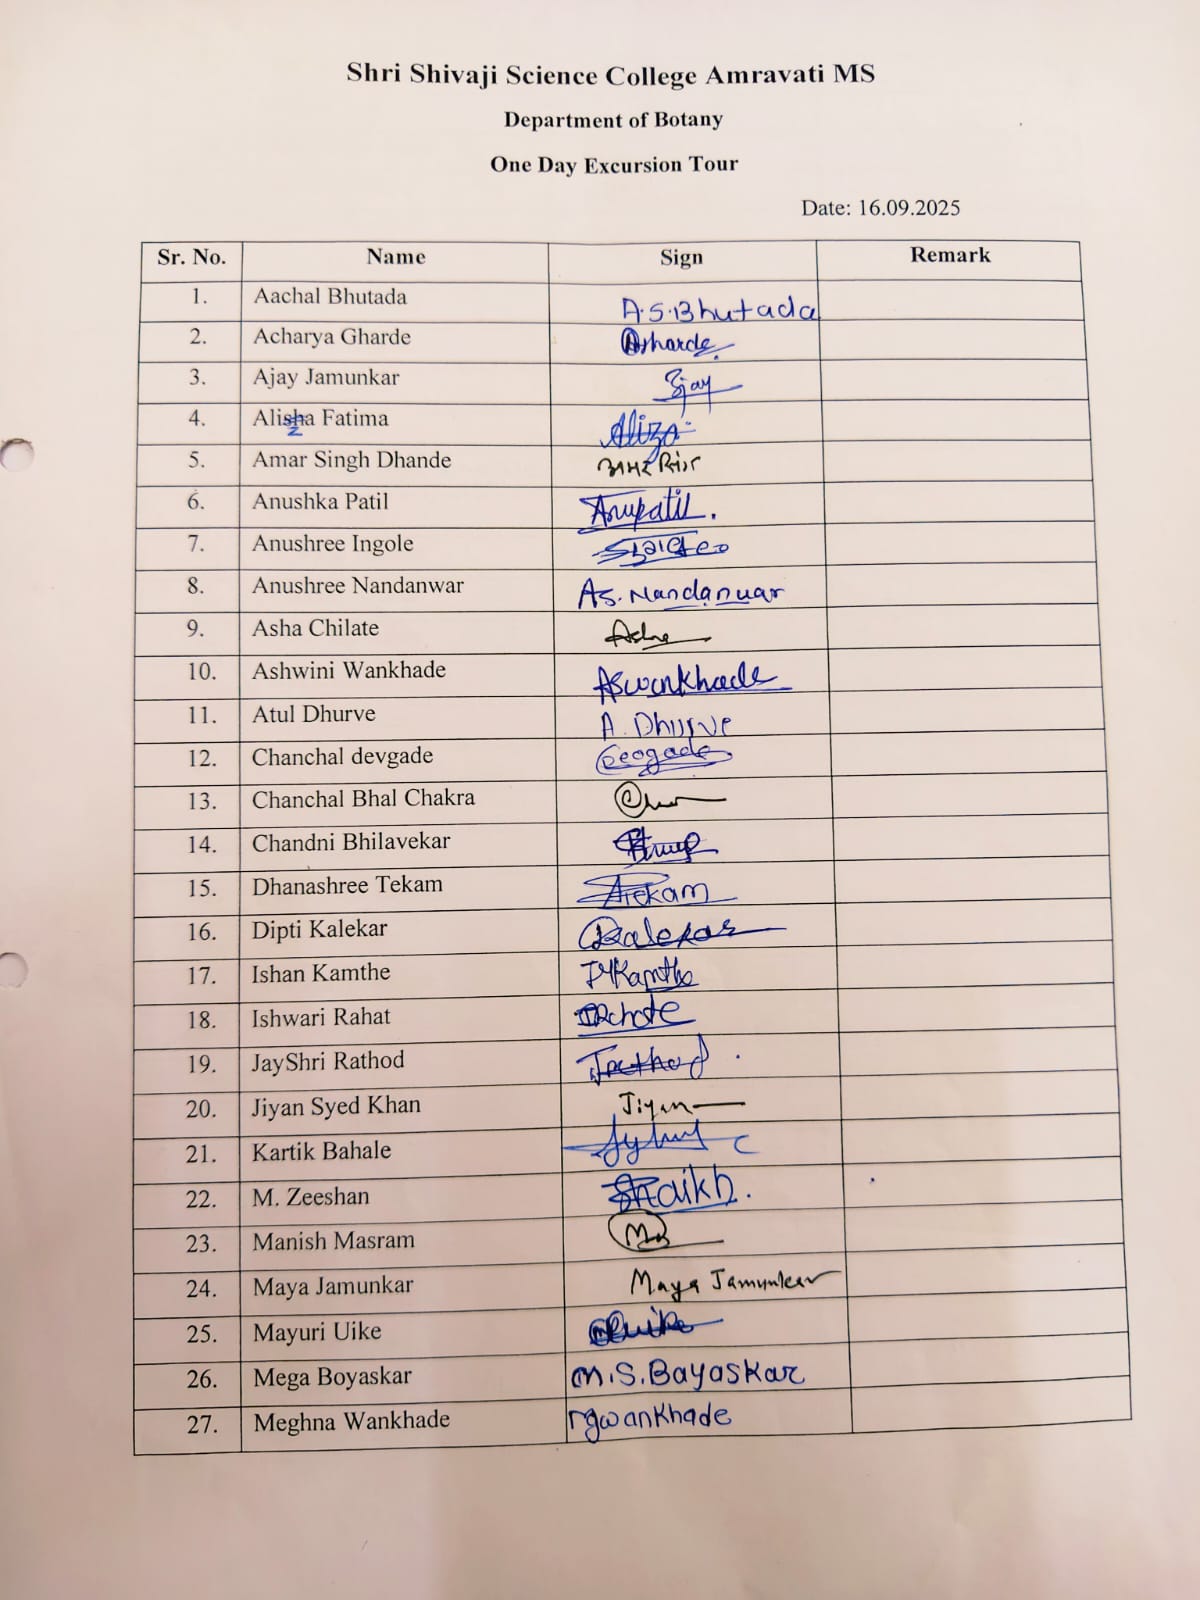 Shri Shivaji Science College Amravati MS
Department of Botany
One Day Excursion Tour
Date: 16.09.2025
Sr. No. Name Sign Remark
1. Aachal Bhutada A.S.Bhutada
2. Acharya Gharde
3. Ajay Jamunkar
4. Alisha Fatima Aliza
z
5. Amar Singh Dhande
6. Anushka Patil Anupatil.
7. Anushree Ingole
8. Anushree Nandanwar As. Nandanwar
9. Asha Chilate Asha
10. Ashwini Wankhade Aswankhade
11. Atul Dhurve A. Dhurve
12. Chanchal devgade
13. Chanchal Bhal Chakra
14. Chandni Bhilavekar
15. Dhanashree Tekam
16. Dipti Kalekar
17. Ishan Kamthe
18. Ishwari Rahat
19. JayShri Rathod
20. Jiyan Syed Khan Jiyan
21. Kartik Bahale
22. M. Zeeshan Shaikh.
23. Manish Masram
24. Maya Jamunkar Maya Jamunkar
25. Mayuri Uike
26. Mega Boyaskar M.S.Bayaskar
27. Meghna Wankhade